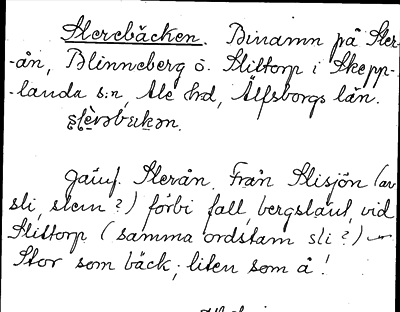 Slerebäcken. Binamn på Sler-
-ån, Blinneberg ö. Slittorp i Skepp-
-landa s:n, Ale hrd, Älfsborgs län.
Jämf. Slerån. Från Slisjön (av
sli, slem?) förbi fall, bergslänt, vid
Slittorp (samma ordstam sli?)
Stor som bäck; liten som å!